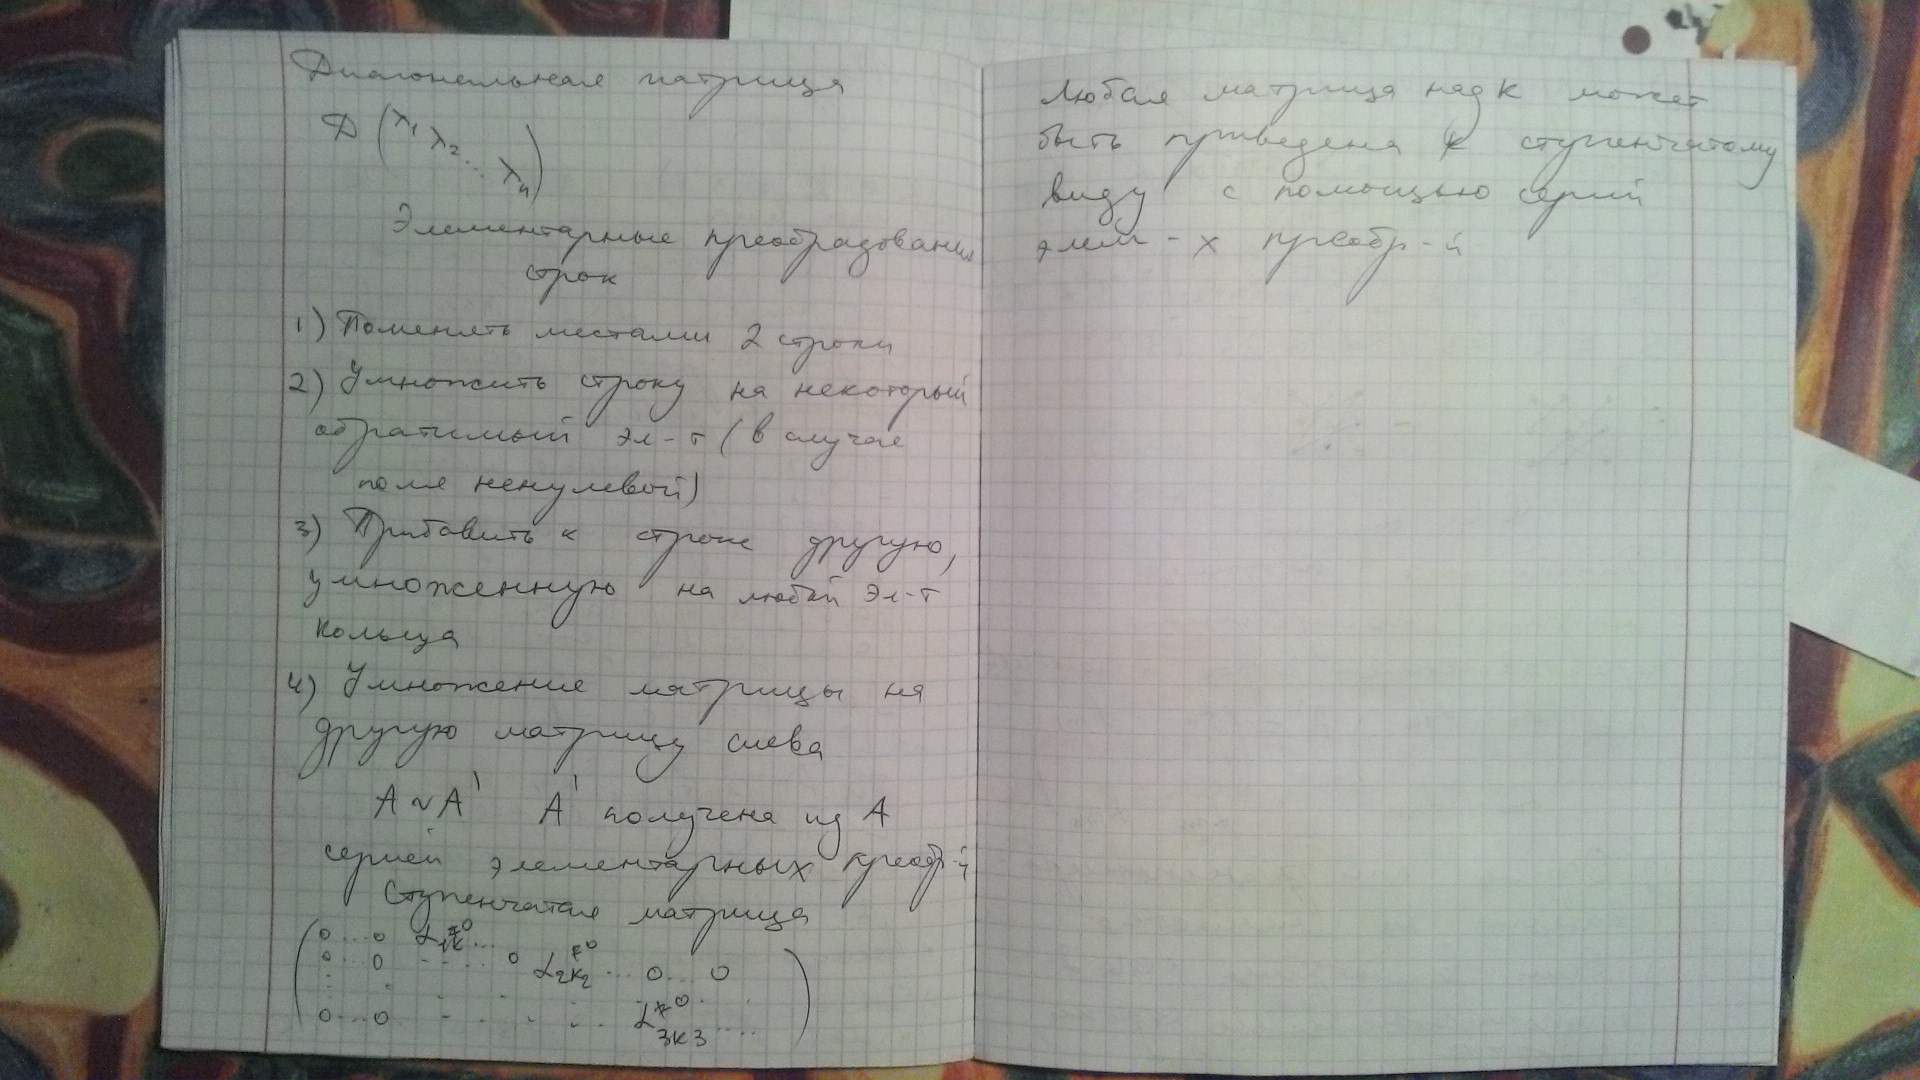 Диагональная матрица
D (λ₁ λ₂ ... λₙ)
Элементарные преобразования
строк
1) Поменять местами 2 строки
2) Умножить строку на некоторый
обратимый эл-т (в случае
поля ненулевой)
3) Прибавить к строке другую,
умноженную на любой эл-т
кольца
4) Умножение матрицы на
другую матрицу слева
A ~ A' A' получена из A
серией элементарных преобр-й
Ступенчатая матрица
0 ... 0 α₁ₖ ≠0 ...
0 ... 0 - ... 0 α₂ₖ₂ ≠0 ... 0 ... 0
0 ... 0 - - - ... α₃ₖ₃ ≠0 ....
Любая матрица над K может
быть приведена к ступенчатому
виду с помощью серий
элем-х преобр-й